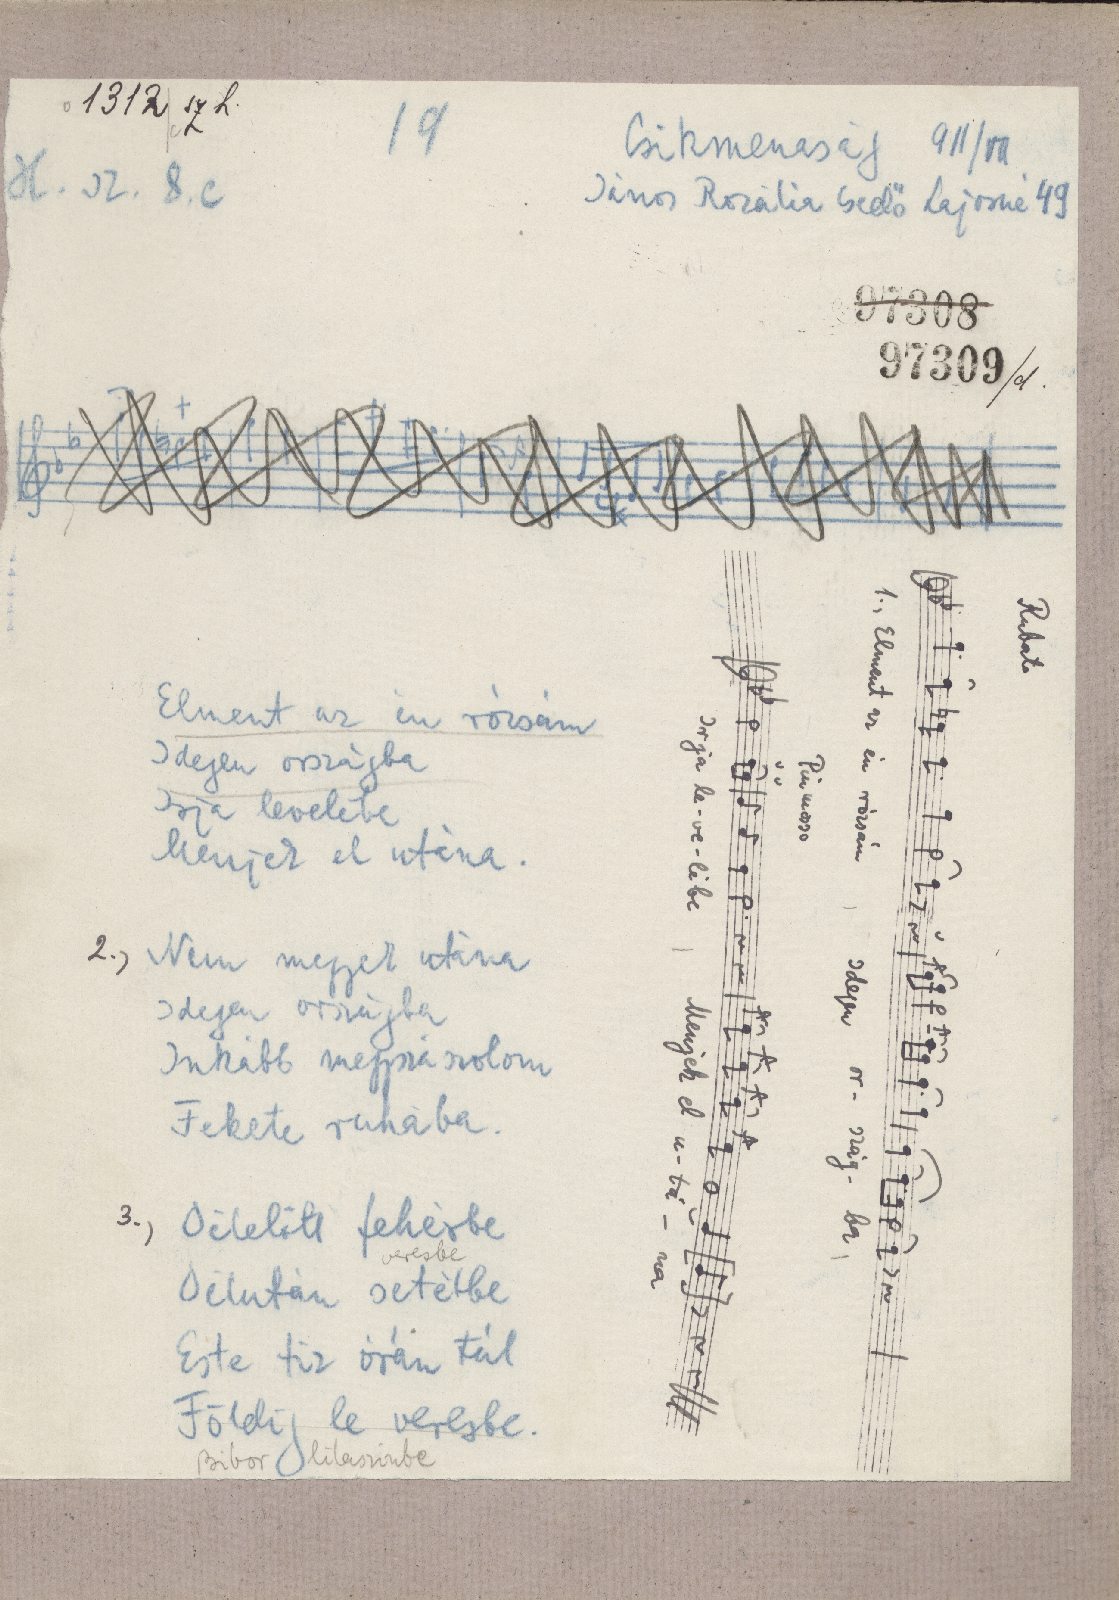 1312 sz h.
19
Csikmenaság 911/VII
H. sz. 8.c
János Rozália Gedő Lajosné 49
97308
97309/d.
Rubato
1., Elment az én rózsám, Idegen or-szág-ba,
Più mosso
Irja le-ve-libe, Menjek el u-tá-na
Elment az én rózsám
Idegen országba
Irja levelébe
Menjek el utána.
2., Nem megyek utána
Idegen országba
Inkább meggyászolom
Fekete ruhába.
3., Délelőtt fehérbe
veresbe
Délután setétbe
Este tiz órán túl
Földig le veresbe.
Bibor lilaszinbe